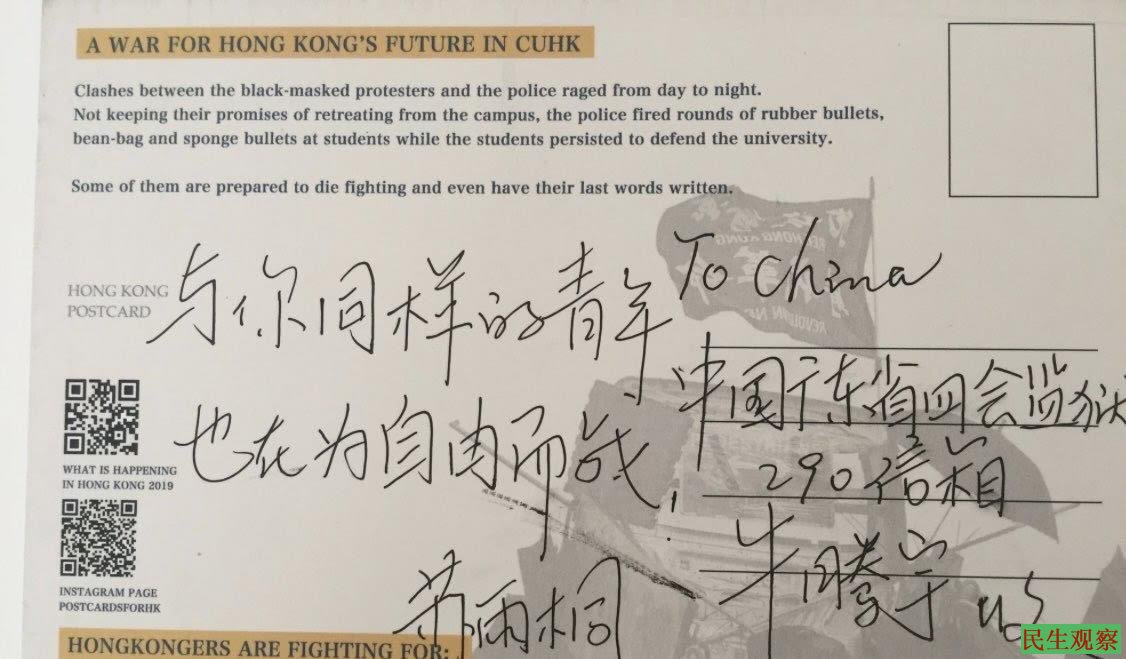 A WAR FOR HONG KONG'S FUTURE IN CUHK
Clashes between the black-masked protesters and the police raged from day to night.
Not keeping their promises of retreating from the campus, the police fired rounds of rubber bullets,
bean-bag and sponge bullets at students while the students persisted to defend the university.
Some of them are prepared to die fighting and even have their last words written.
HONG KONG
POSTCARD
与你同样的青年
也在为自由而战！
苏雨桐
To China
中国广东省四会监狱
290信箱
牛腾宇
WHAT IS HAPPENING
IN HONG KONG 2019
INSTAGRAM PAGE
POSTCARDSFORHK
HONGKONGERS ARE FIGHTING FOR:
民生观察